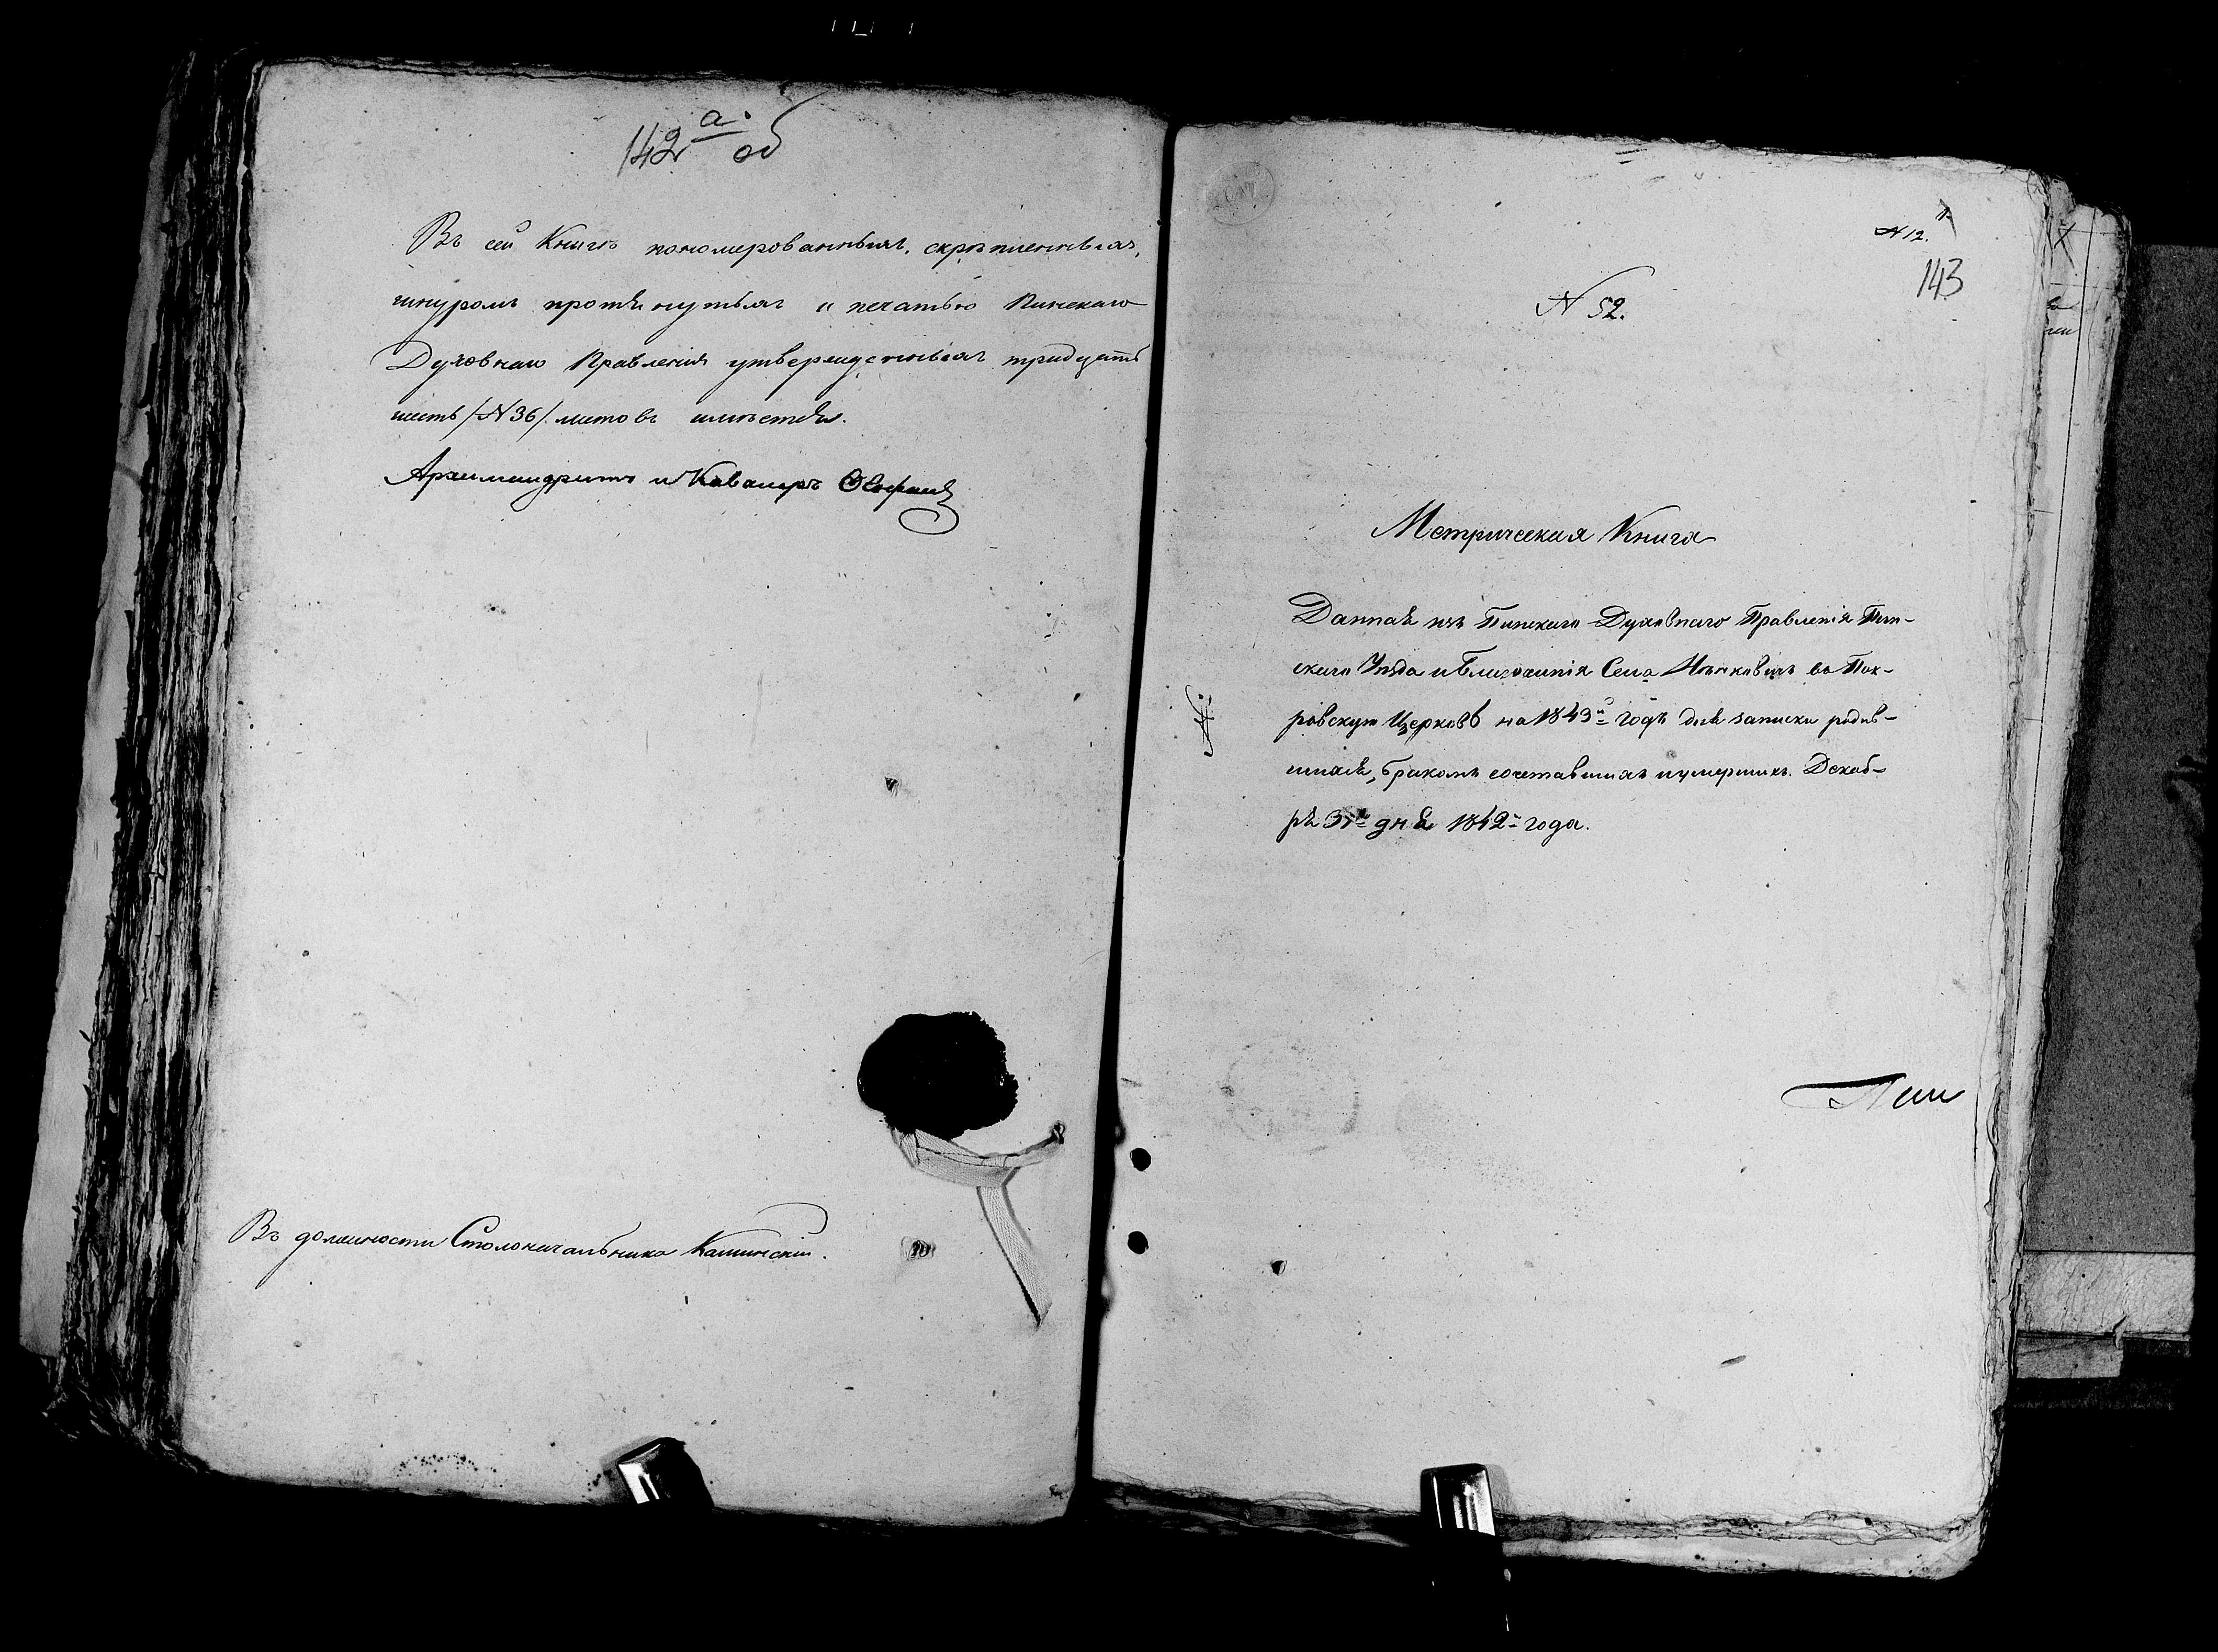 142 а. об
Въ сей Книгѣ пономерованныхъ, скрѣпленныхъ,
шнуромъ протянутыхъ и печатью Пинскаго
Духовнаго Правленія утвержденныхъ тридцать
шесть /№ 36/ листовъ имѣется.
Архимандритъ и Кавалеръ
Въ должности Столоначальника Каминскій.
№ 12.
143
№ 52.
Метрическая Книга
Данная изъ Пинскаго Духовнаго Правленія Пин-
скаго Уѣзда и Благочинія Села во Пок-
ровскую Церковь на 1843й годъ для записки родив-
шихся, бракомъ сочетавшихъ и умершихъ. Декаб-
ря 31го дня 1842го года.